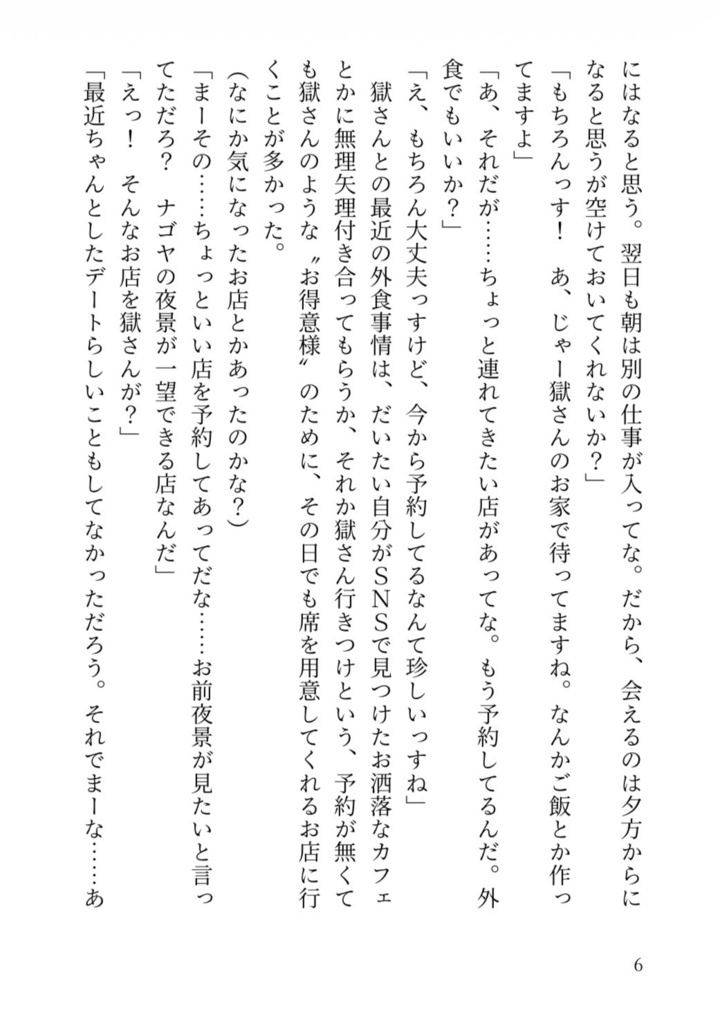 にはなると思う。翌日も朝は別の仕事が入ってな。だから、会えるのは夕方からに
なると思うが空けておいてくれないか？」
「もちろんっす！　あ、じゃー獄さんのお家で待ってますね。なんかご飯とか作っ
てますよ」
「あ、それだが……ちょっと連れてきたい店があってな。もう予約してるんだ。外
食でもいいか？」
「え、もちろん大丈夫っすけど、今から予約してるなんて珍しいっすね」
　獄さんとの最近の外食事情は、だいたい自分がＳＮＳで見つけたお洒落なカフェ
とかに無理矢理付き合ってもらうか、それか獄さん行きつけという、予約が無くて
も獄さんのような〝お得意様〟のために、その日でも席を用意してくれるお店に行
くことが多かった。
（なにか気になったお店とかあったのかな？）
「まーその……ちょっといい店を予約してあってだな……お前夜景が見たいと言っ
てただろ？　ナゴヤの夜景が一望できる店なんだ」
「えっ！　そんなお店を獄さんが？」
「最近ちゃんとしたデートらしいこともしてなかっただろう。それでまーな……あ
6